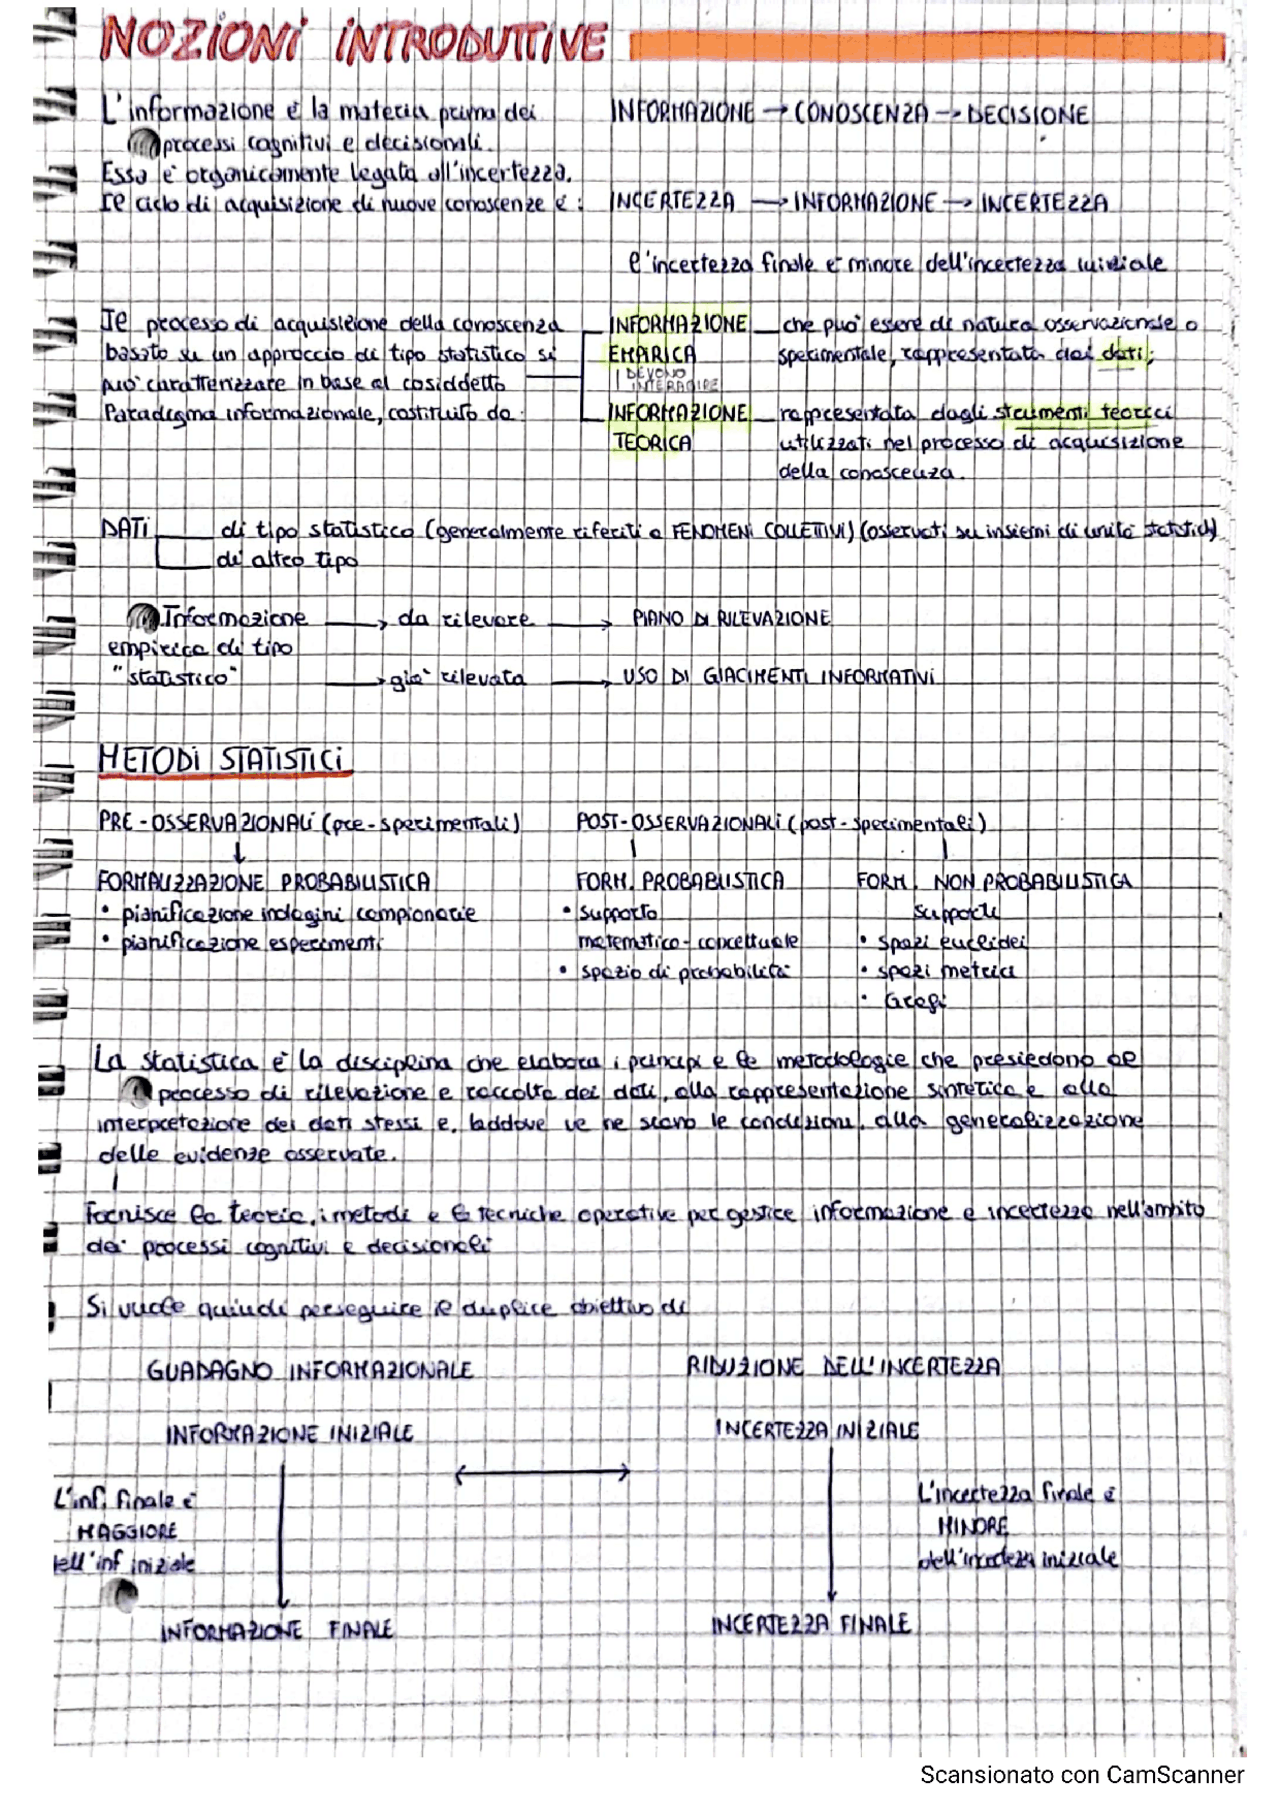 NOZIONI INTRODUTTIVE
L'informazione è la materia prima dei
processi cognitivi e decisionali.
INFORMAZIONE → CONOSCENZA → DECISIONE
Essa è organicamente legata all'incertezza.
Il ciclo di acquisizione di nuove conoscenze è:
INCERTEZZA → INFORMAZIONE → INCERTEZZA
l'incertezza finale è minore dell'incertezza iniziale
Il processo di acquisizione della conoscenza
basato su un approccio di tipo statistico si
può caratterizzare in base al cosiddetto
Paradigma informazionale, costituito da:
INFORMAZIONE
EMPIRICA
che può essere di natura osservazionale o
sperimentale, rappresentata dai dati;
DEVONO
INTERAGIRE
INFORMAZIONE
TEORICA
rappresentata dagli strumenti teorici
utilizzati nel processo di acquisizione
della conoscenza.
DATI
di tipo statistico (generalmente riferiti a FENOMENI COLLETTIVI) (osservati su insiemi di unità statistich)
di altro tipo
Informazione
empirica di tipo
"statistico"
→ da rilevare → PIANO DI RILEVAZIONE
→ già rilevata → USO DI GIACIMENTI INFORMATIVI
METODI STATISTICI
PRE-OSSERVAZIONALI (pre-sperimentali)
FORMALIZZAZIONE PROBABILISTICA
• pianificazione indagini campionarie
• pianificazione esperimenti
POST-OSSERVAZIONALI (post-sperimentali)
FORM. PROBABLISTICA
• supporto
matematico-concettuale
• spazio di probabilità
FORM. NON PROBABILISTICA
supporti
• spazi euclidei
• spazi metrici
• Grafi
La statistica è la disciplina che elabora i principi e le metodologie che presiedono al
processo di rilevazione e raccolta dei dati, alla rappresentazione sintetica e alla
interpretazione dei dati stessi e, laddove ve ne siano le condizioni, alla generalizzazione
delle evidenze osservate.
Fornisce la teoria, i metodi e le tecniche operative per gestire informazione e incertezza nell'ambito
dei processi cognitivi e decisionali
Si vuole quindi perseguire il duplice obiettivo di
GUADAGNO INFORMAZIONALE
RIDUZIONE DELL'INCERTEZZA
INFORMAZIONE INIZIALE
INCERTEZZA INIZIALE
L'inf. finale è
MAGGIORE
dell'inf iniziale
L'incertezza finale è
MINORE
dell'incertezza iniziale
INFORMAZIONE FINALE
INCERTEZZA FINALE
Scansionato con CamScanner